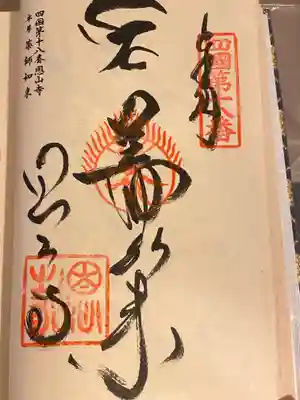 四國第十八番
奉拝
薬師如来
恩山寺
四国第十八番恩山寺
本尊 薬師如来